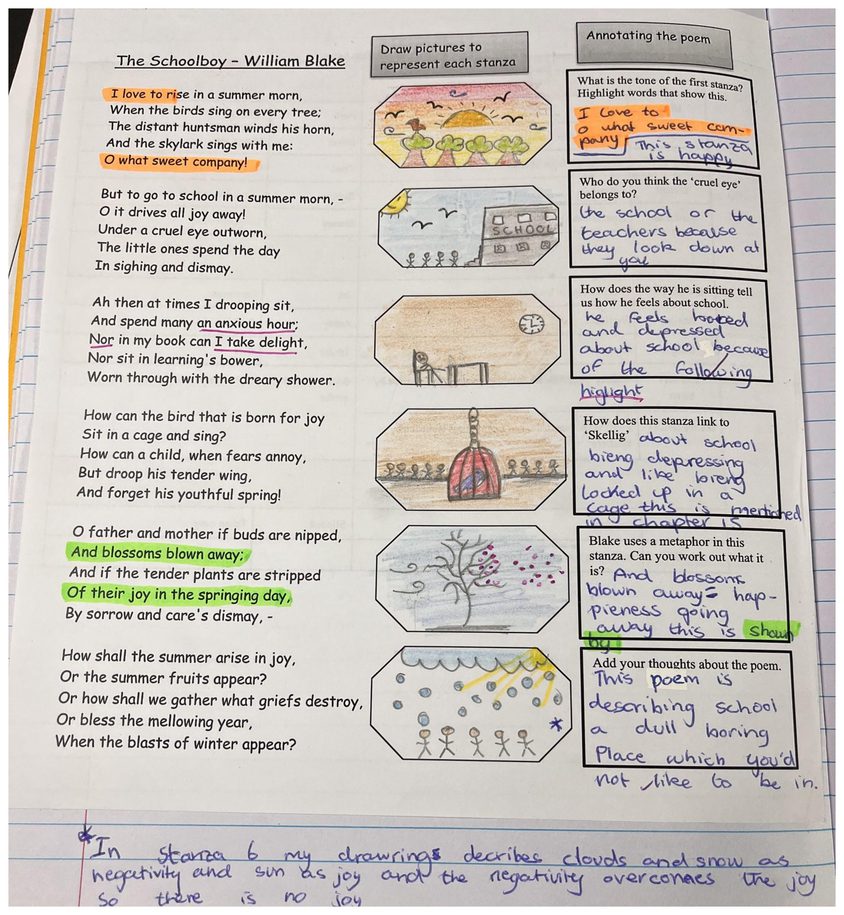 The Schoolboy – William Blake
Draw pictures to
represent each stanza
Annotating the poem
I love to rise in a summer morn,
When the birds sing on every tree;
The distant huntsman winds his horn,
And the skylark sings with me:
O what sweet company!
What is the tone of the first stanza?
Highlight words that show this.
I love to
o what sweet com-
pany
This stanza
is happy
But to go to school in a summer morn, -
O it drives all joy away!
Under a cruel eye outworn,
The little ones spend the day
In sighing and dismay.
SCHOOL
Who do you think the ‘cruel eye’
belongs to?
the school or the
teachers because
they look down at
you
Ah then at times I drooping sit,
And spend many an anxious hour;
Nor in my book can I take delight,
Nor sit in learning's bower,
Worn through with the dreary shower.
How does the way he is sitting tell
us how he feels about school.
he feels bored
and depressed
about school because
of the following
higlight
How can the bird that is born for joy
Sit in a cage and sing?
How can a child, when fears annoy,
But droop his tender wing,
And forget his youthful spring!
How does this stanza link to
‘Skellig’ about school
bieng depressing
and like bieng
locked up in a
cage this is mentioned
in chapter 15
O father and mother if buds are nipped,
And blossoms blown away;
And if the tender plants are stripped
Of their joy in the springing day,
By sorrow and care's dismay, -
Blake uses a metaphor in this
stanza. Can you work out what it
is? And blossoms
blown away= hap-
pieness going
away this is shown
by
How shall the summer arise in joy,
Or the summer fruits appear?
Or how shall we gather what griefs destroy,
Or bless the mellowing year,
When the blasts of winter appear?
*
Add your thoughts about the poem.
This poem is
describing school
a dull boring
Place which you'd
not like to be in.
* In stanza 6 my drawrings decribes clouds and snow as
negativity and sun as joy and the negativity overcomes the joy
so there is no joy